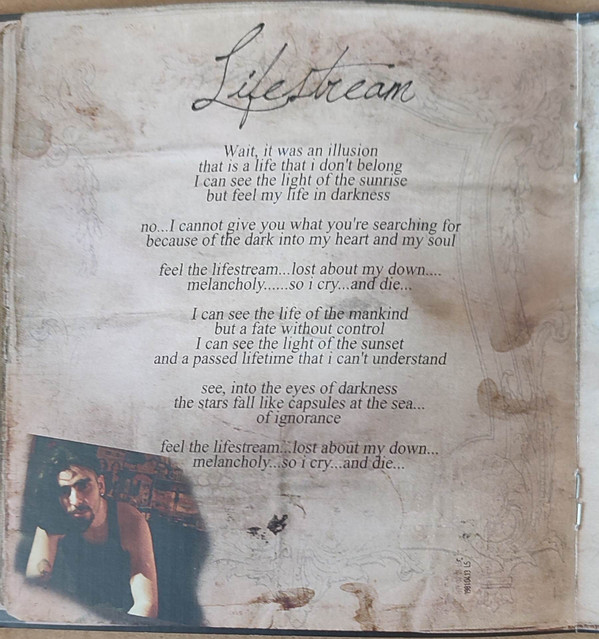 Lifestream
Wait, it was an illusion
that is a life that i don't belong
I can see the light of the sunrise
but feel my life in darkness
no...I cannot give you what you're searching for
because of the dark into my heart and my soul
feel the lifestream...lost about my down....
melancholy......so i cry...and die...
I can see the life of the mankind
but a fate without control
I can see the light of the sunset
and a passed lifetime that i can't understand
see, into the eyes of darkness
the stars fall like capsules at the sea...
of ignorance
feel the lifestream...lost about my down...
melancholy...so i cry...and die...